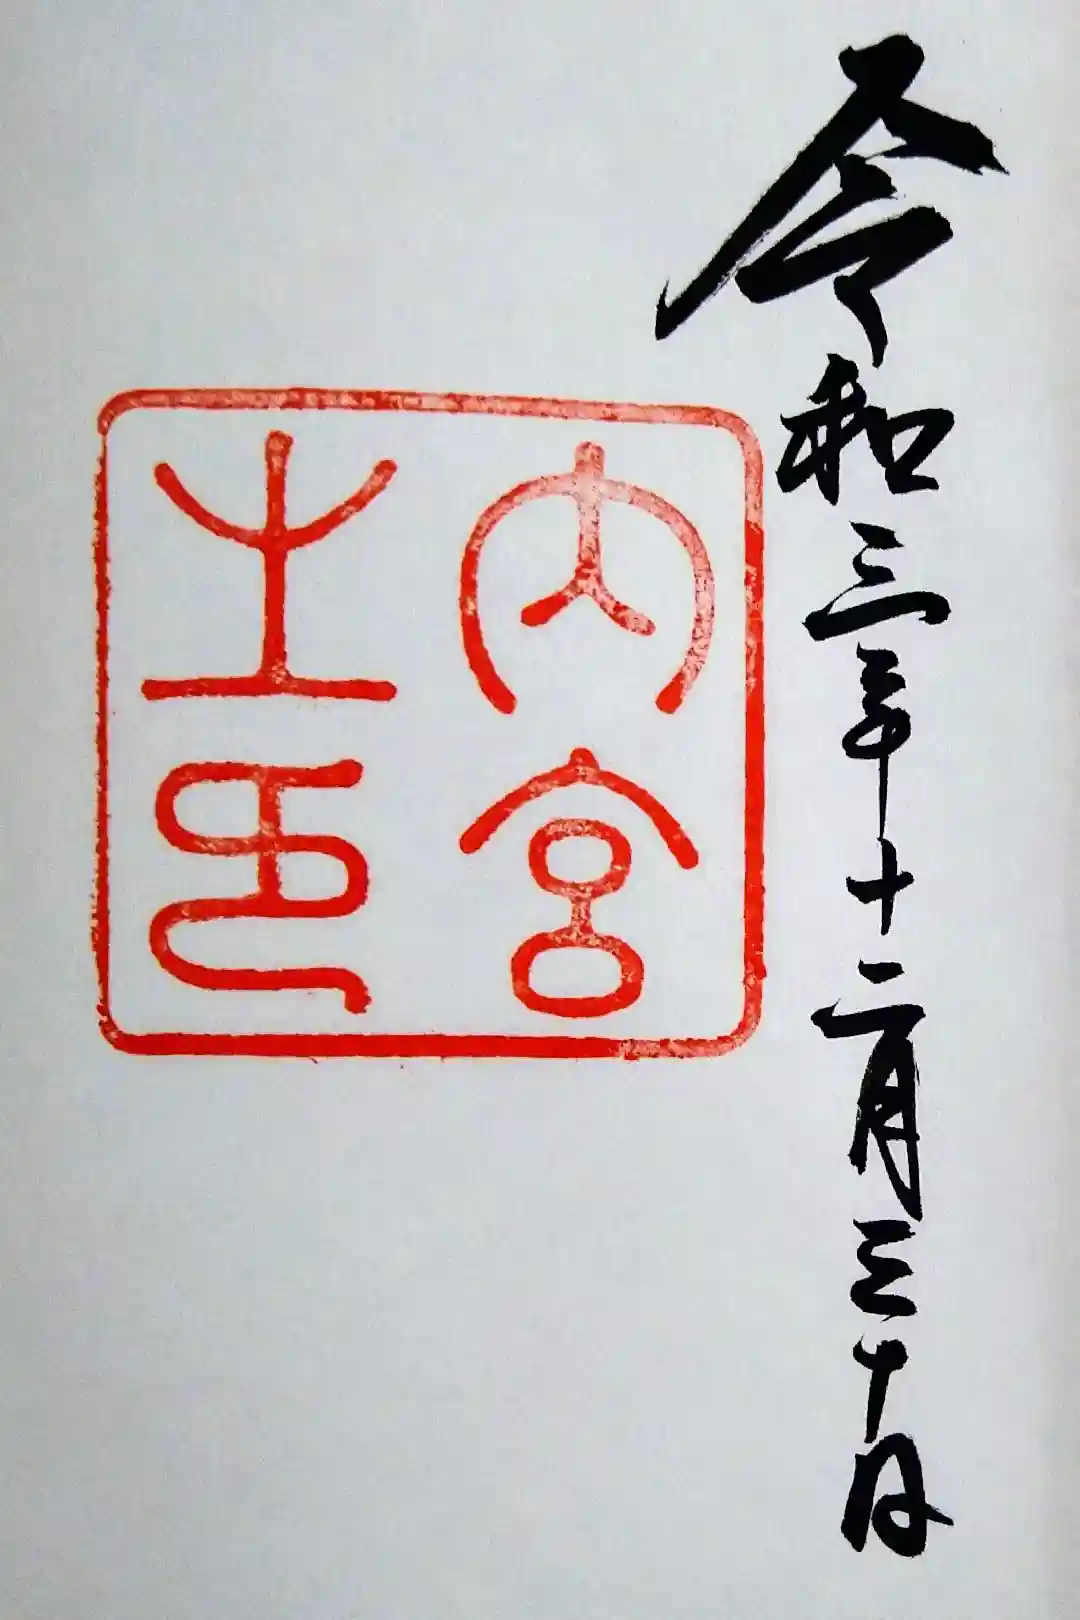 令和三年十二月三十日
内宮
之印